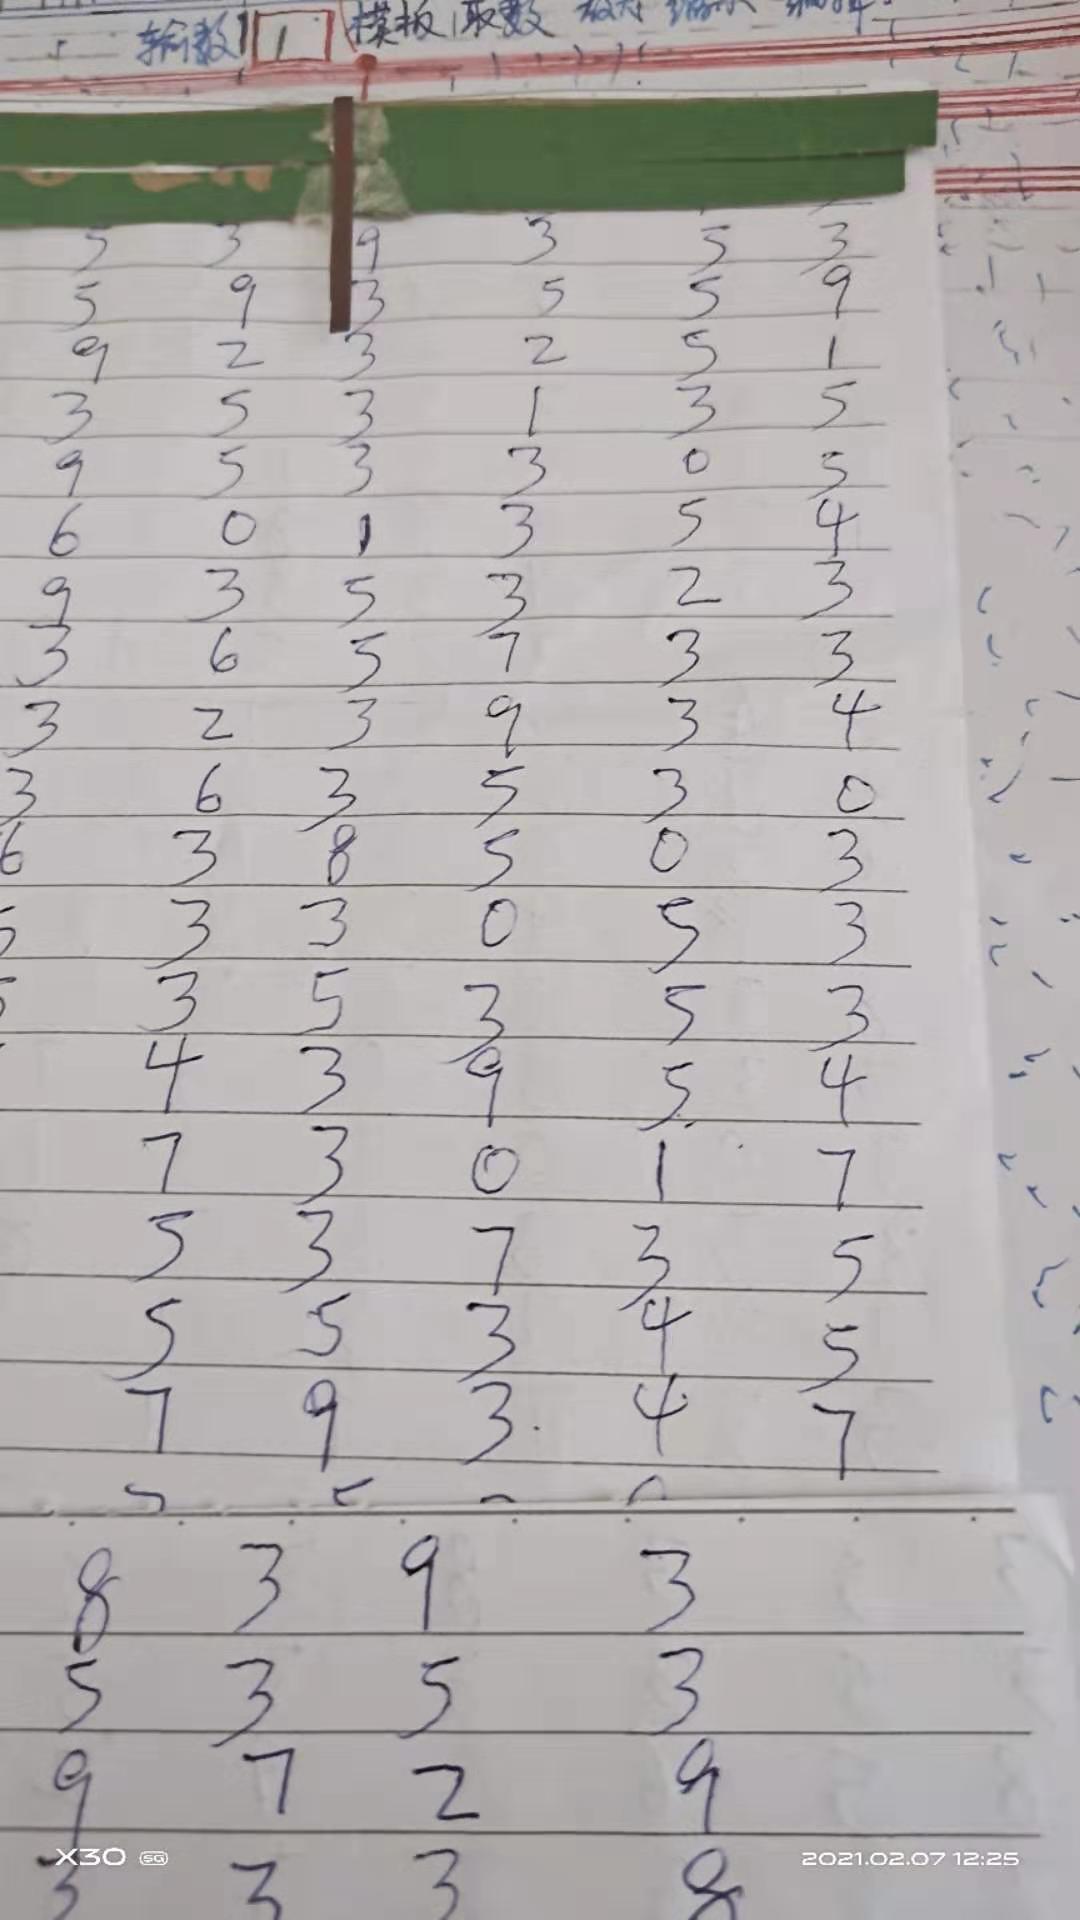 输数 1 模板取数
5 3 9 3 5 3
5 9 3 5 5 9
9 2 3 2 5 1
3 5 3 1 3 5
9 5 3 3 0 5
6 0 1 3 5 4
9 3 5 3 2 3
3 6 5 7 3 3
3 2 3 9 3 4
3 6 3 5 3 0
6 3 8 5 0 3
5 3 3 0 5 3
5 3 5 3 5 3
4 3 9 5 4
7 3 0 1 7
5 3 7 3 5
5 5 3 4 5
7 9 3 4 7
8 3 9 3
5 3 5 3
9 7 2 9
3 3 3 8
X30 5G
2021.02.07 12:25